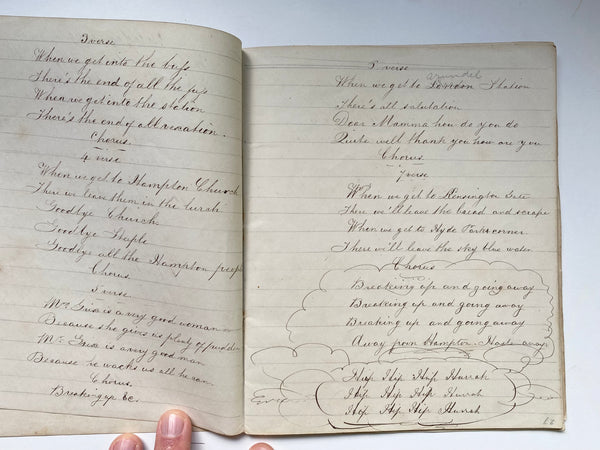 3 verse
When we get into the buss
There's the end of all the fuss
When we get into the station
There's the end of all vacation.
Chorus.
4 verse
When we get to Hampton Church
There we leave them in the lurch
Goodbye Church
Goodbye Steeple
Goodbye all the Hampton people
Chorus.
5 verse
Mrs Gixa is a very good woman
Because she gives us plenty of pudden
Mr. Gixa is a very good man
Because he wacks us all he can
Chorus.
Breaking up &c.
verse
arundel
When we get to London Station
There's all salutation
Dear Mamma how do you do
Quite well thank you how are you
Chorus.
7 verse
When we get to Kensington Gate
There we'll leave the bread and scrape
When we get to Hyde Park corner
There we'll leave the sky blue water
Chorus
Breaking up and going away
Breaking up and going away
Breaking up and going away
Away from Hampton. Haste away
Hip Hip Hip Hurrah
Hip Hip Hip Hurrah
Hip Hip Hip Hurrah